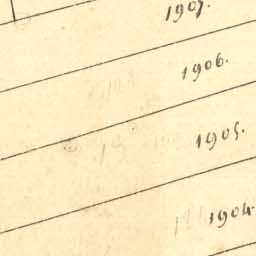 1907.
1906.
1905.
1904.